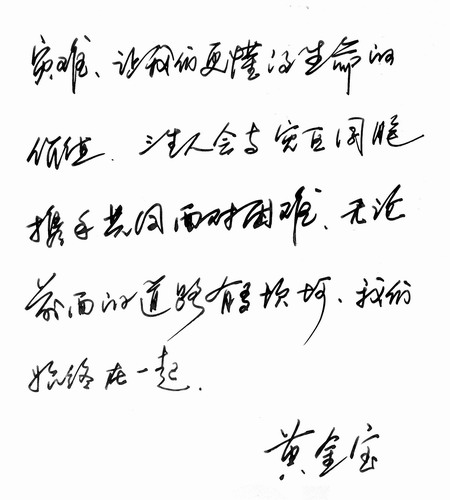 灾难、让我们更懂得生命的
价值. 让人会与灾区同胞
携手共同面对困难、无论
前面的道路有多坎坷、我们
始终在一起.
黄金宝